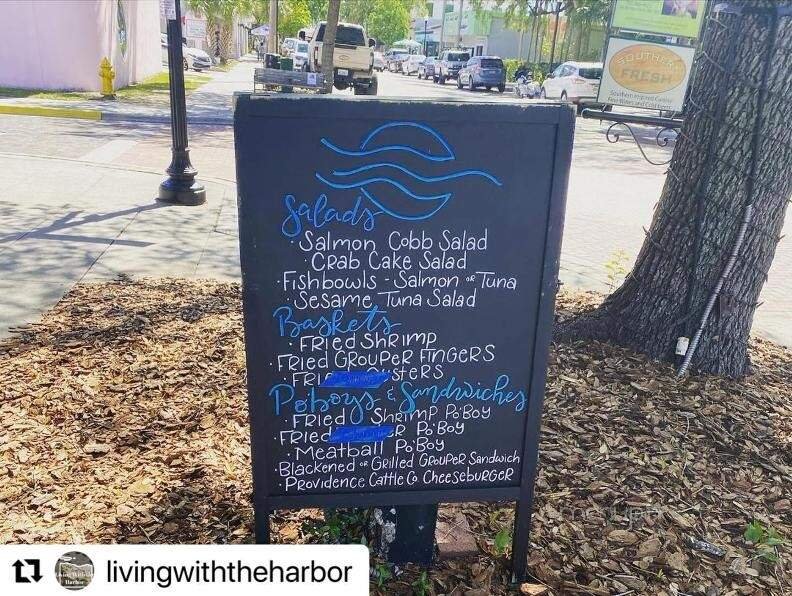 SOUTHERN
FRESH
Salads
· Salmon Cobb Salad
· CRab Cake Salad
· Fishbowls - Salmon or Tuna
· Sesame Tuna Salad
Baskets
· Fried Shrimp
· FRied GRouPeR FinGeRS
· FRI
steRS
Poboys & Sandwiches
· FRied Shrimp Po'Boy
· FRied
R Po'Boy
· Meatball Po'Boy
· Blackened or Grilled GRouPeR Sandwich
· PRovidence Cattle Co CheesebuRGeR
livingwiththeharbor